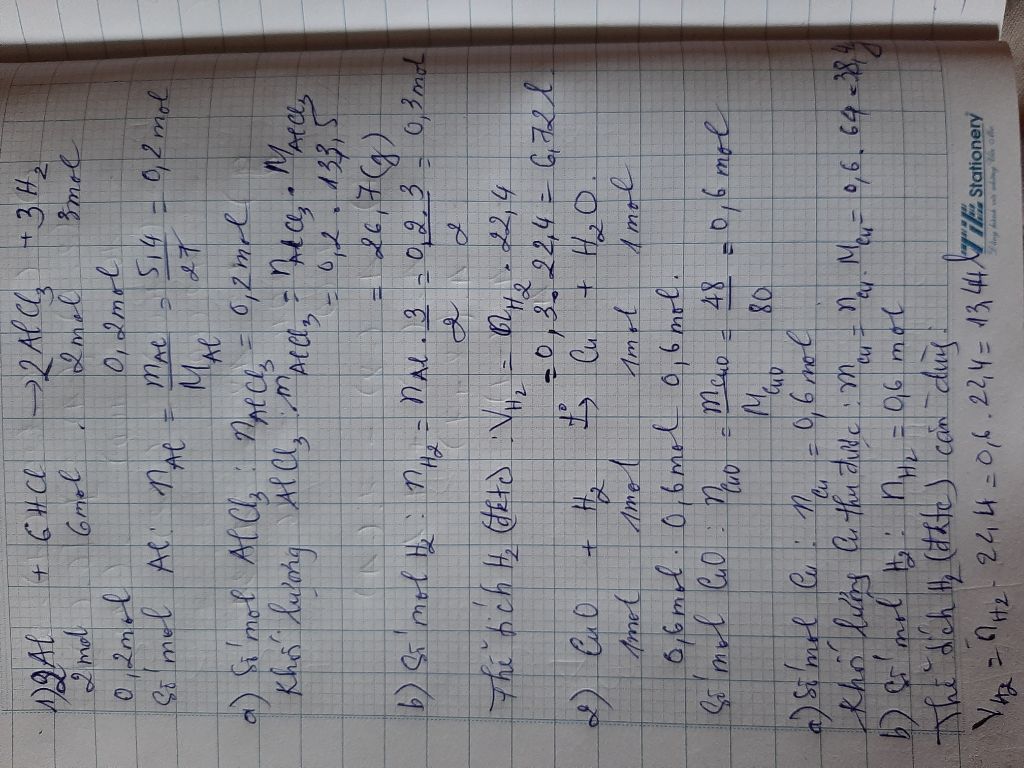 1) 2Al + 6HCl → 2AlCl3 + 3H2
2mol 6mol 2mol 3mol
0,2mol 0,2mol
Số mol Al: nAl = mAl/MAl = 5,4/27 = 0,2mol
a) Số mol AlCl3: nAlCl3 = 0,2mol
Khối lượng AlCl3: mAlCl3 = nAlCl3 . MAlCl3
= 0,2 . 133,5
= 26,7(g)
b) Số mol H2: nH2 = nAl . 3/2 = 0,2.3/2 = 0,3mol
Thể tích H2 (đktc): VH2 = nH2 . 22,4
= 0,3 . 22,4 = 6,72l
2) CuO + H2 t°→ Cu + H2O.
1mol 1mol 1mol 1mol
0,6mol. 0,6mol 0,6mol.
Số mol CuO: nCuO = mCuO/MCuO = 48/80 = 0,6mol
a) Số mol Cu: nCu = 0,6mol
Khối lượng Cu thu được: mCu = nCu . MCu = 0,6 . 64 = 38,4g
b) Số mol H2: nH2 = 0,6mol
Thể tích H2 (đktc) cần dùng:
VH2 = nH2 . 22,4 = 0,6 . 22,4 = 13,44l
Stationery